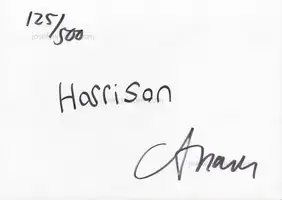 125/500
Harrison